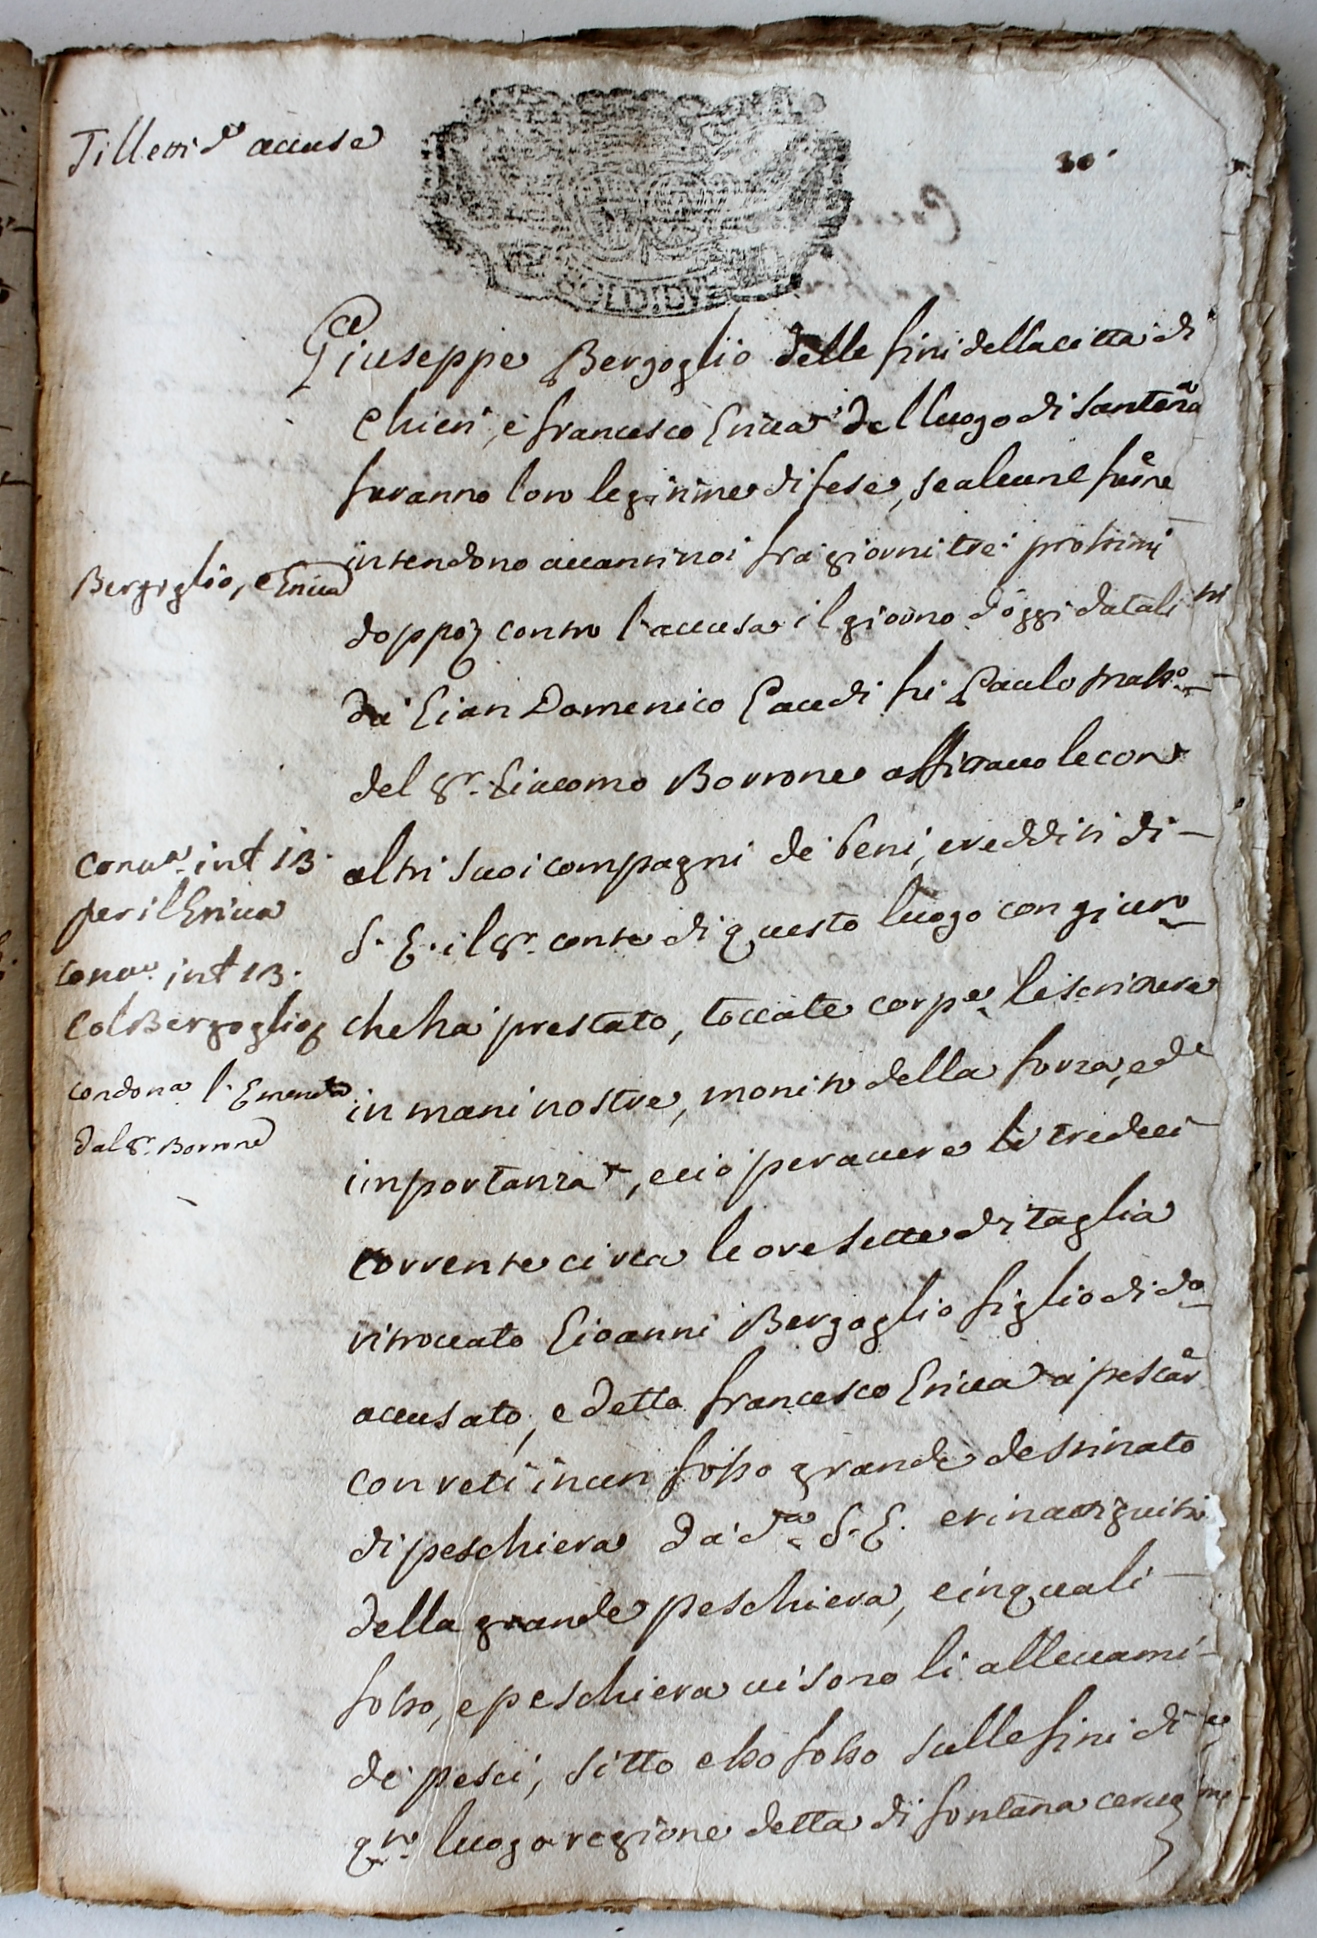 Tilletti d'accuse
30
SOLDI DUE
Giuseppe Bergoglio delle fini della città di
Chieri, e francesco Enica del luogo di Santena
faranno loro legitime difese, se alcune farne
intendono avanti noi fra giorni tre prossimi
Bergoglio, e Enica
doppo contro l'accusa il giorno d'oggi datali
da Gian Domenico Gaudi fu Paulo mass.o
del Sr. Giacomo Borrone affittavole con
altri suoi compagni de beni, e redditi di
S. E. il Sr. conte di questo luogo con giuro
che ha prestato, toccate corp.e le scritture
in mani nostre, monito della forza, ed
importanza, e ciò per avere li tredeci
corrente circa le ore sette di taglia
ritroccato Gioanni Bergoglio figlio di do
accusato, e detto francesco Enica a pescar
con reti in un fosso grande destinato
di peschiera da d.a S. E. et in attiguità
della grande peschiera, e in quali
fosso, e peschiera vi sono li allevami
de pesci, sitto esso fosso sulle fini di
qto. luogo regione detta di fontana
conv.a in £ 13
per il Enica
conv.a in £ 13.
col Bergoglio
condona l'Emenda
dal Sr. Borrone